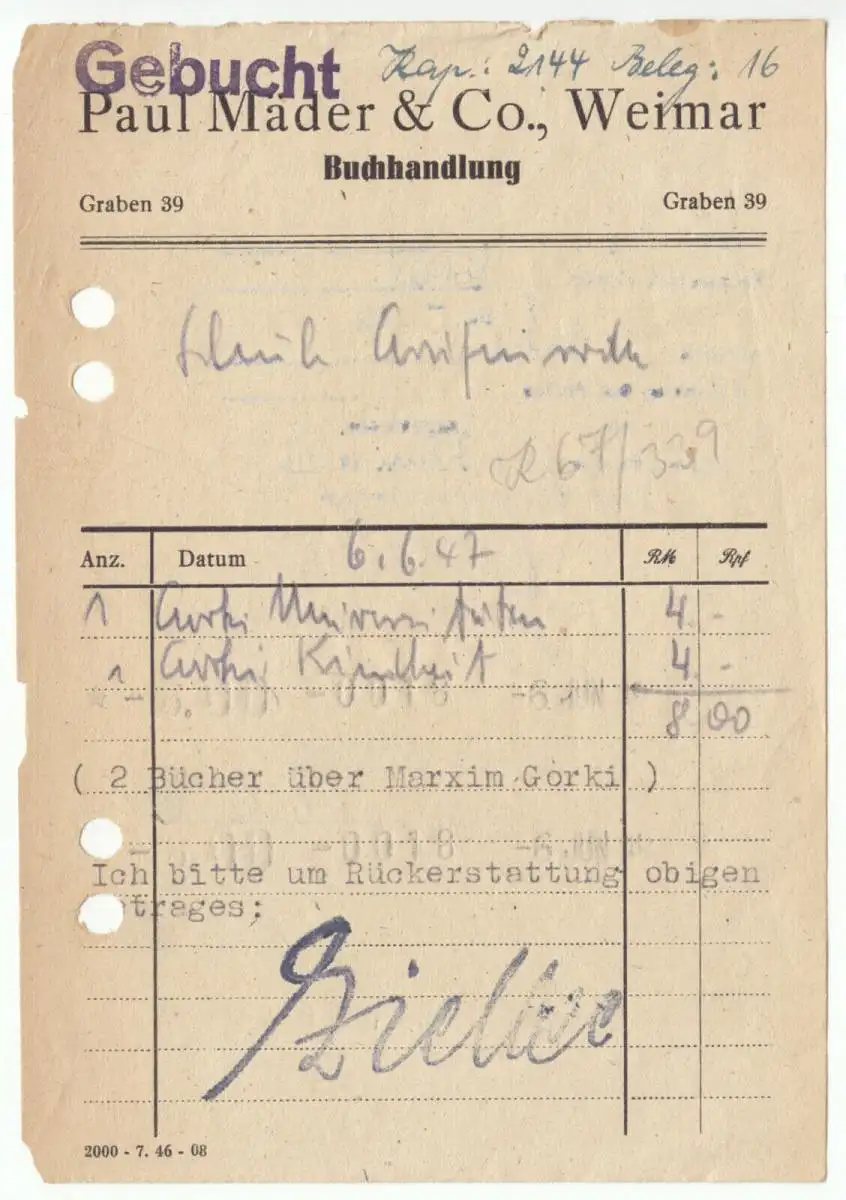 Gebucht Kap.: 2144 Beleg: 16
Paul Mader & Co., Weimar
Buchhandlung
Graben 39 Graben 39
R 67/339
Anz. Datum 6.6.47 RM Rpf
1 Gorki Universitäten 4 -
1 Gorki Kindheit 4 -
8 00
( 2 Bücher über Marxim Gorki )
Ich bitte um Rückerstattung obigen
trages:
2000 - 7. 46 - 08